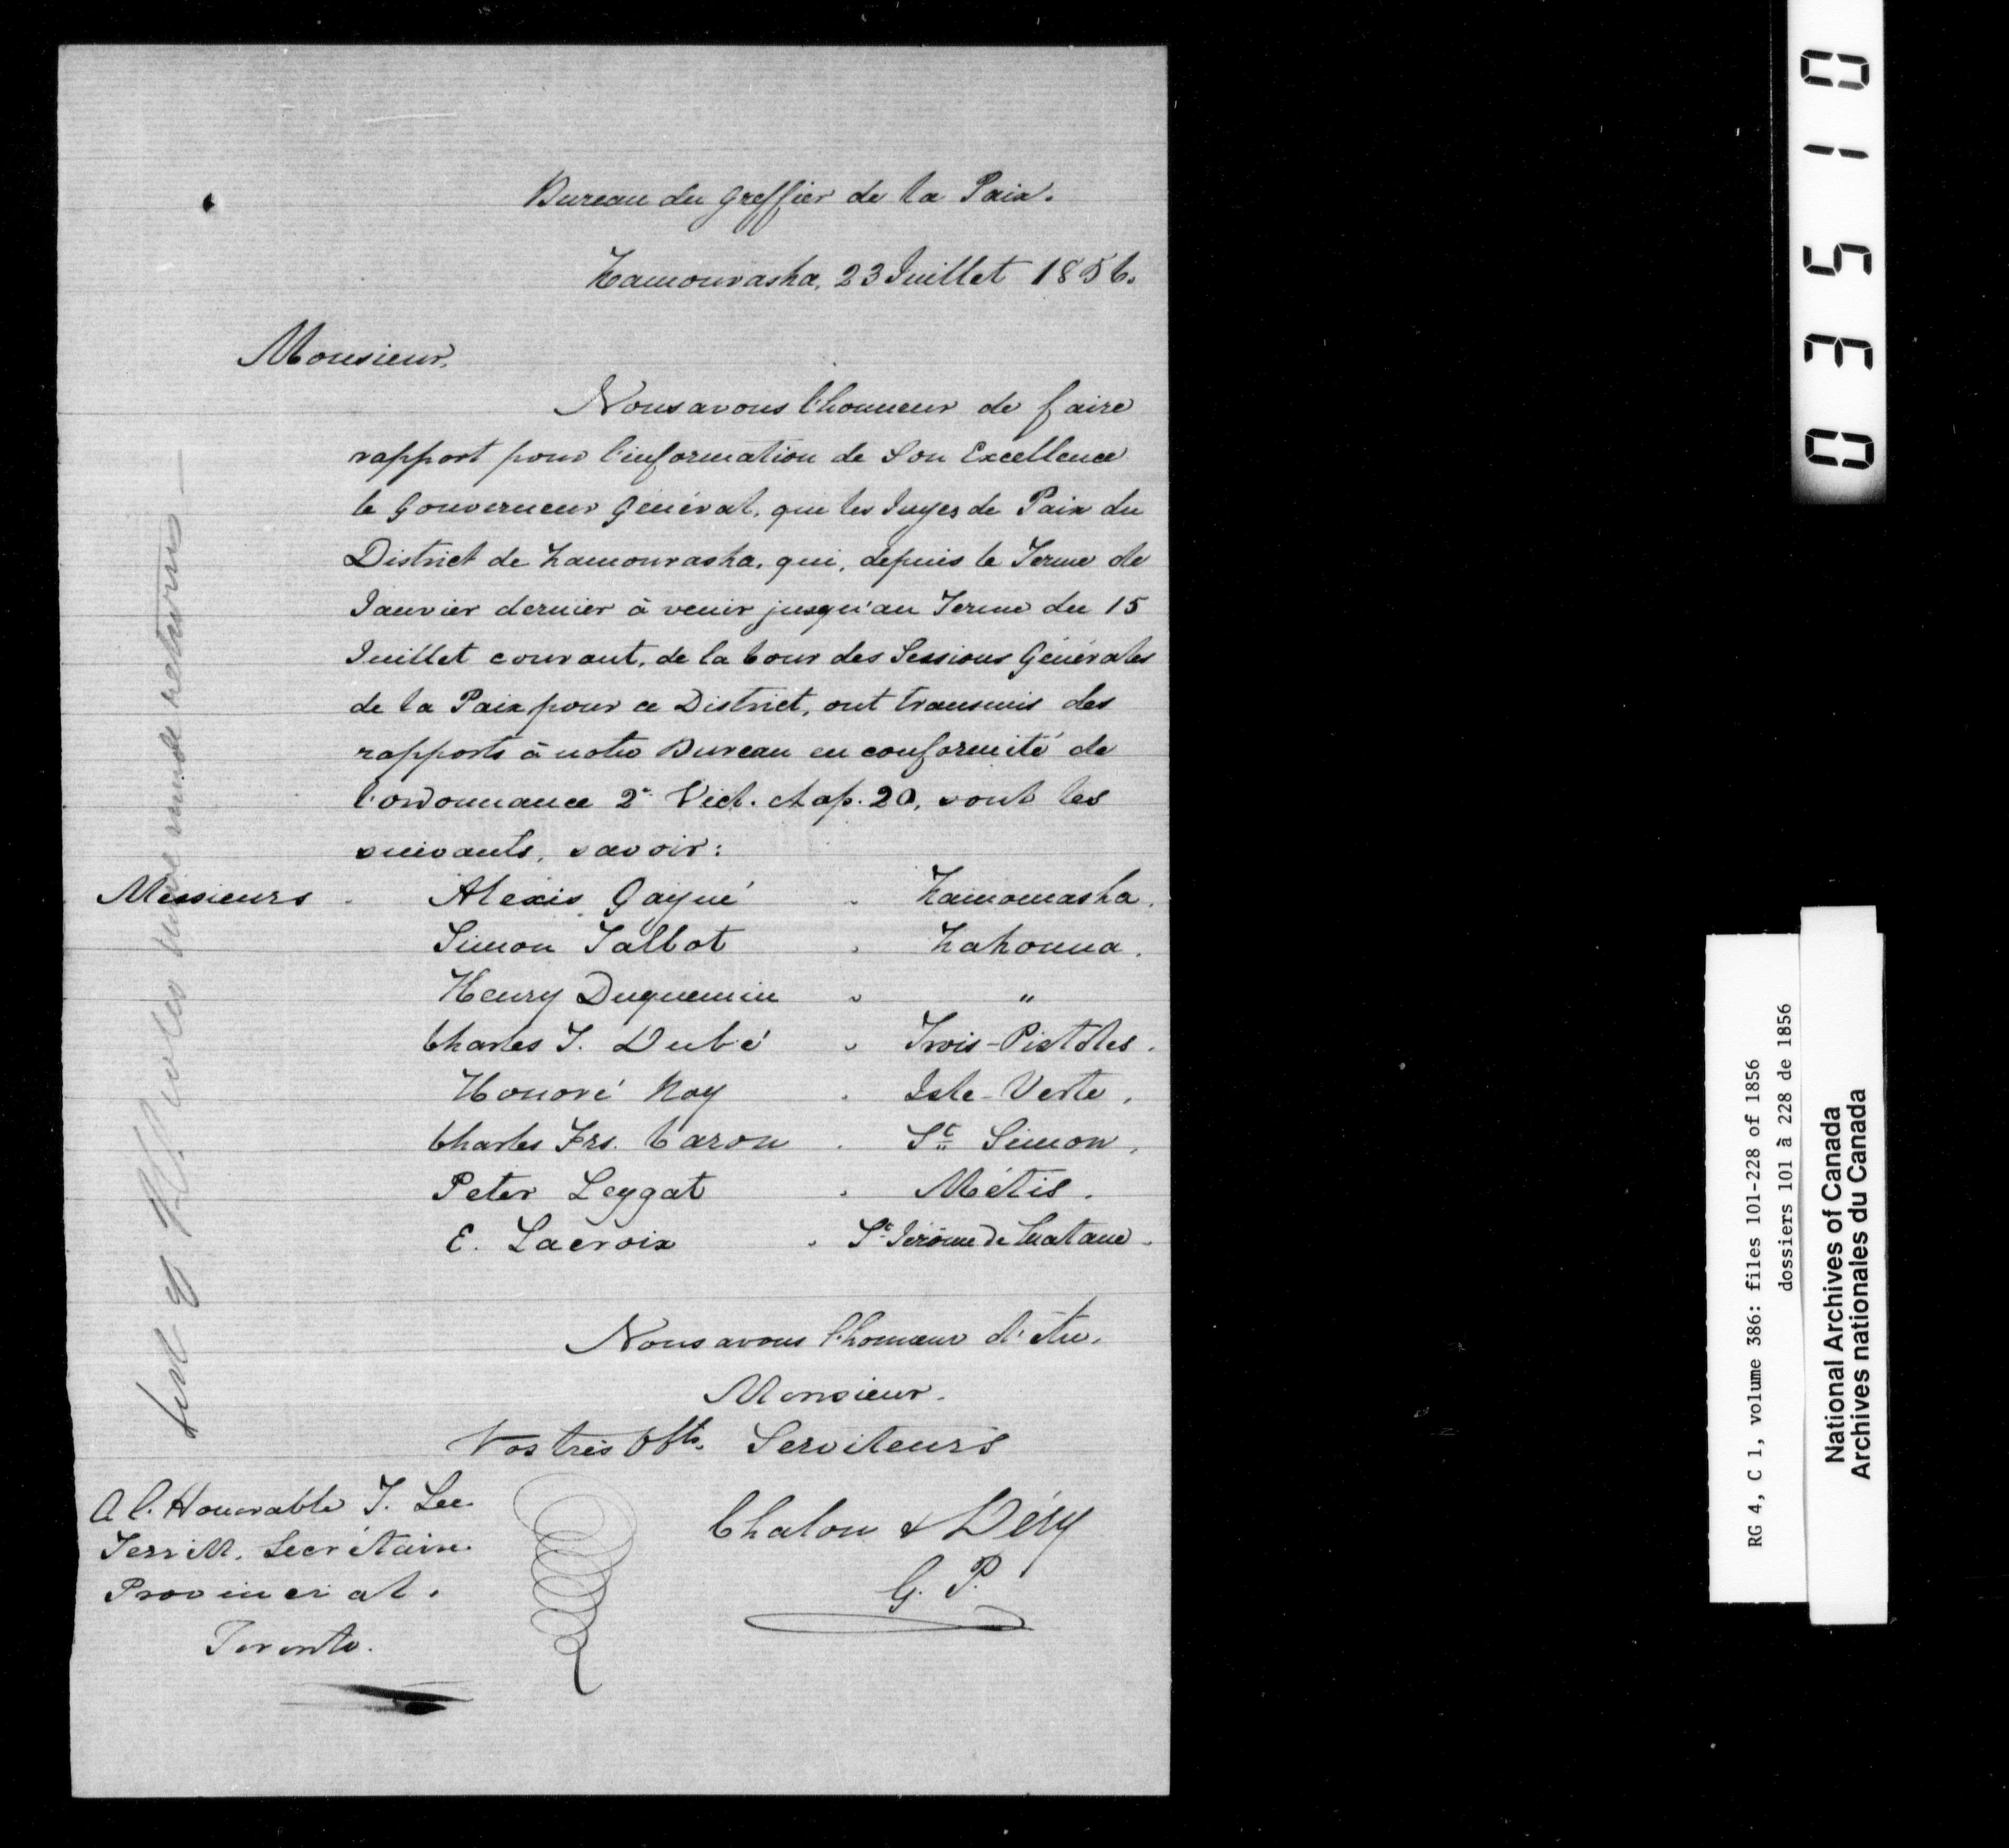 Bureau du Greffier de la Paix.
Kamouraska, 23 Juillet 1856.
Monsieur,
Nous avons l'honneur de faire
rapport pour l'information de Son Excellence
le Gouverneur Général, que les Juges de Paix du
District de Kamouraska, qui, depuis le Terme de
Janvier dernier à venir jusqu'au Terme du 15
Juillet courant, de la Cour des Sessions Générales
de la Paix pour ce District, ont transmis des
rapports à notre Bureau en conformité de
l'ordonnance 2e Vict. chap. 20, sont les
suivants, savoir:
Messieurs . Alexis Gagné . Kamouraska.
Simon Talbot . Kakouna.
Henry Duquemin . "
Charles T. Dubé . Trois-Pistoles.
Honoré Roy . Isle-Verte,
Charles Frs. Caron . St Simon,
Peter Leggat . Métis.
E. Lacroix . St Jérôme de Matane.
Nous avons l'honneur d'être,
Monsieur.
Vos très Obts. Serviteurs
Chalou & Déry
G. P.
A l'Honorable T. Lee
Terrill, Secrétaire
Provincial.
Toronto.
03510
RG 4, C 1, volume 386: files 101-228 of 1856
dossiers 101 à 228 de 1856
National Archives of Canada
Archives nationales du Canada